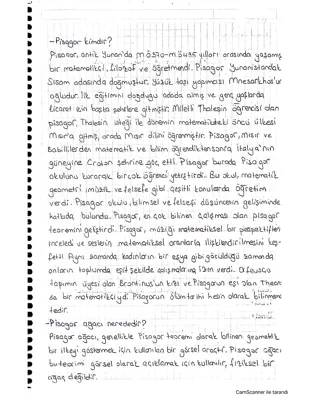 -Pisagor kimdir?
Pisagor, antik Yunan'da MÖ570-MÖ495 yılları arasında yaşamış
bir matematikçi, filozof ve öğretmendi. Pisagor Yunanistandak
Sisam adasında doğmuştur. Yüzük taşı yapımcısı Mnesarkhos'ur
oğludur. İlk eğitimini doğduğu adada almış ve genç yaşlarda
ticaret için başka şehirlere gitmiştir. Miletli Thalesin öğrencisi olan
pisagor, Thalesin isteği ile dönemin matematikteki öncü ülkesi
Mısır'a gitmiş, orada Mısır dilini öğrenmiştir. Pisagor, mısır ve
Babillilerden matematik ve bilim öğrendikten sonra İtalya'nın
güneyine Croton şehrine göç etti. Pisagor burada Pisagor
okulunu kurarak birçok öğrenci yetiştirdi. Bu okul, matematik
geometri, müzik ve felsefe gibi çeşitli konularda öğretim
verdi. Pisagor okulu, bilimsel ve felsefi düşüncenin gelişiminde
katkıda bulundu. Pisagor, en çok bilinen çalışması olan pisagor
teoremini geliştirdi. Pisagor, müziği matematiksel bir perspektiften
inceledi ve seslerin matematiksel oranlarla ilişkilendirilmesini keş-
fetti. Aynı zamanda kadınların bir eşya gibi görüldüğü zamanda
onların toplumda eşit şekilde çalışmalarına izin verdi. Orfeusçu
tapımın üyesi olan Brontinus'un kızı ve Pisagorun eşi olan Theano
da bir matematikçiydi. Pisagorun ölüm tarihi kesin olarak bilinmemek
tedir.
-Pisagor ağacı nerededir?
Pisagor ağacı, genellikle Pisagor teoremi olarak bilinen geometrik
bir ilkeyi göstermek için kullanılan bir görsel araçtır. Pisagor ağacı
bu teoremi görsel olarak açıklamak için kullanılır, fiziksel bir
ağaç değildir.
CamScanner ile tarandı